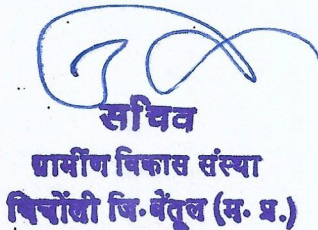 सचिव
ग्रामींण विकास संस्था
चिचोंली जि. बेंतूल (म. प्र.)